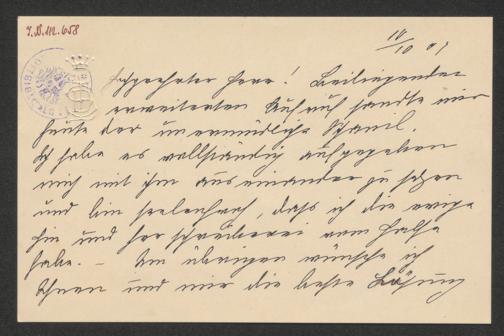 I.N.112.658
10/10 01
Sehr geehrter Herr! Beiliegenden
erweiterten Aufruf sandte mir
heute der unermüdliche
Ich habe es vollständig aufgegeben
mich mit ihm auseinander zu setzen
und bin seelenfroh, dass ich die ewige
hin und her schreiberei vom Halse
habe. – Im übrigen wünsche ich
Ihnen und mir die beste Lösung